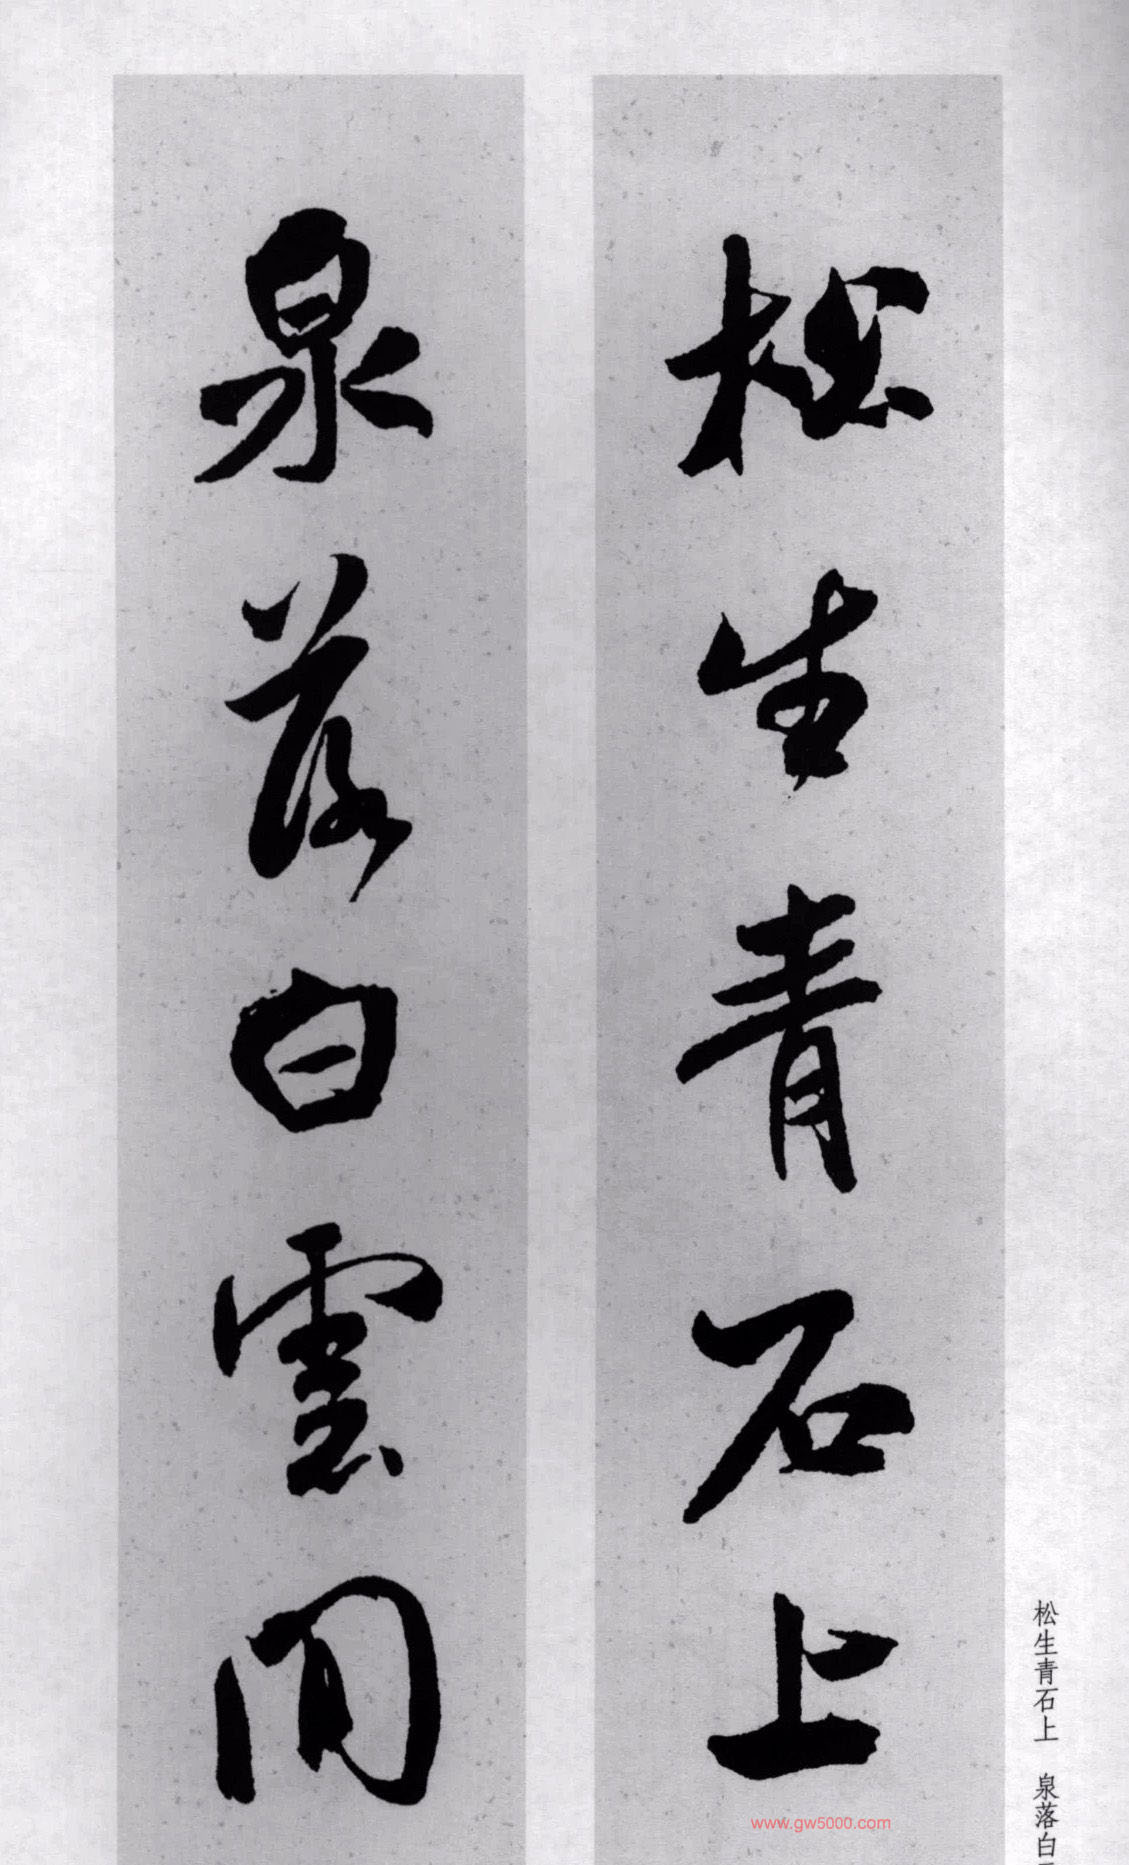 松生青石上
泉落白雲間
松生青石上 泉落白
www.gw5000.com